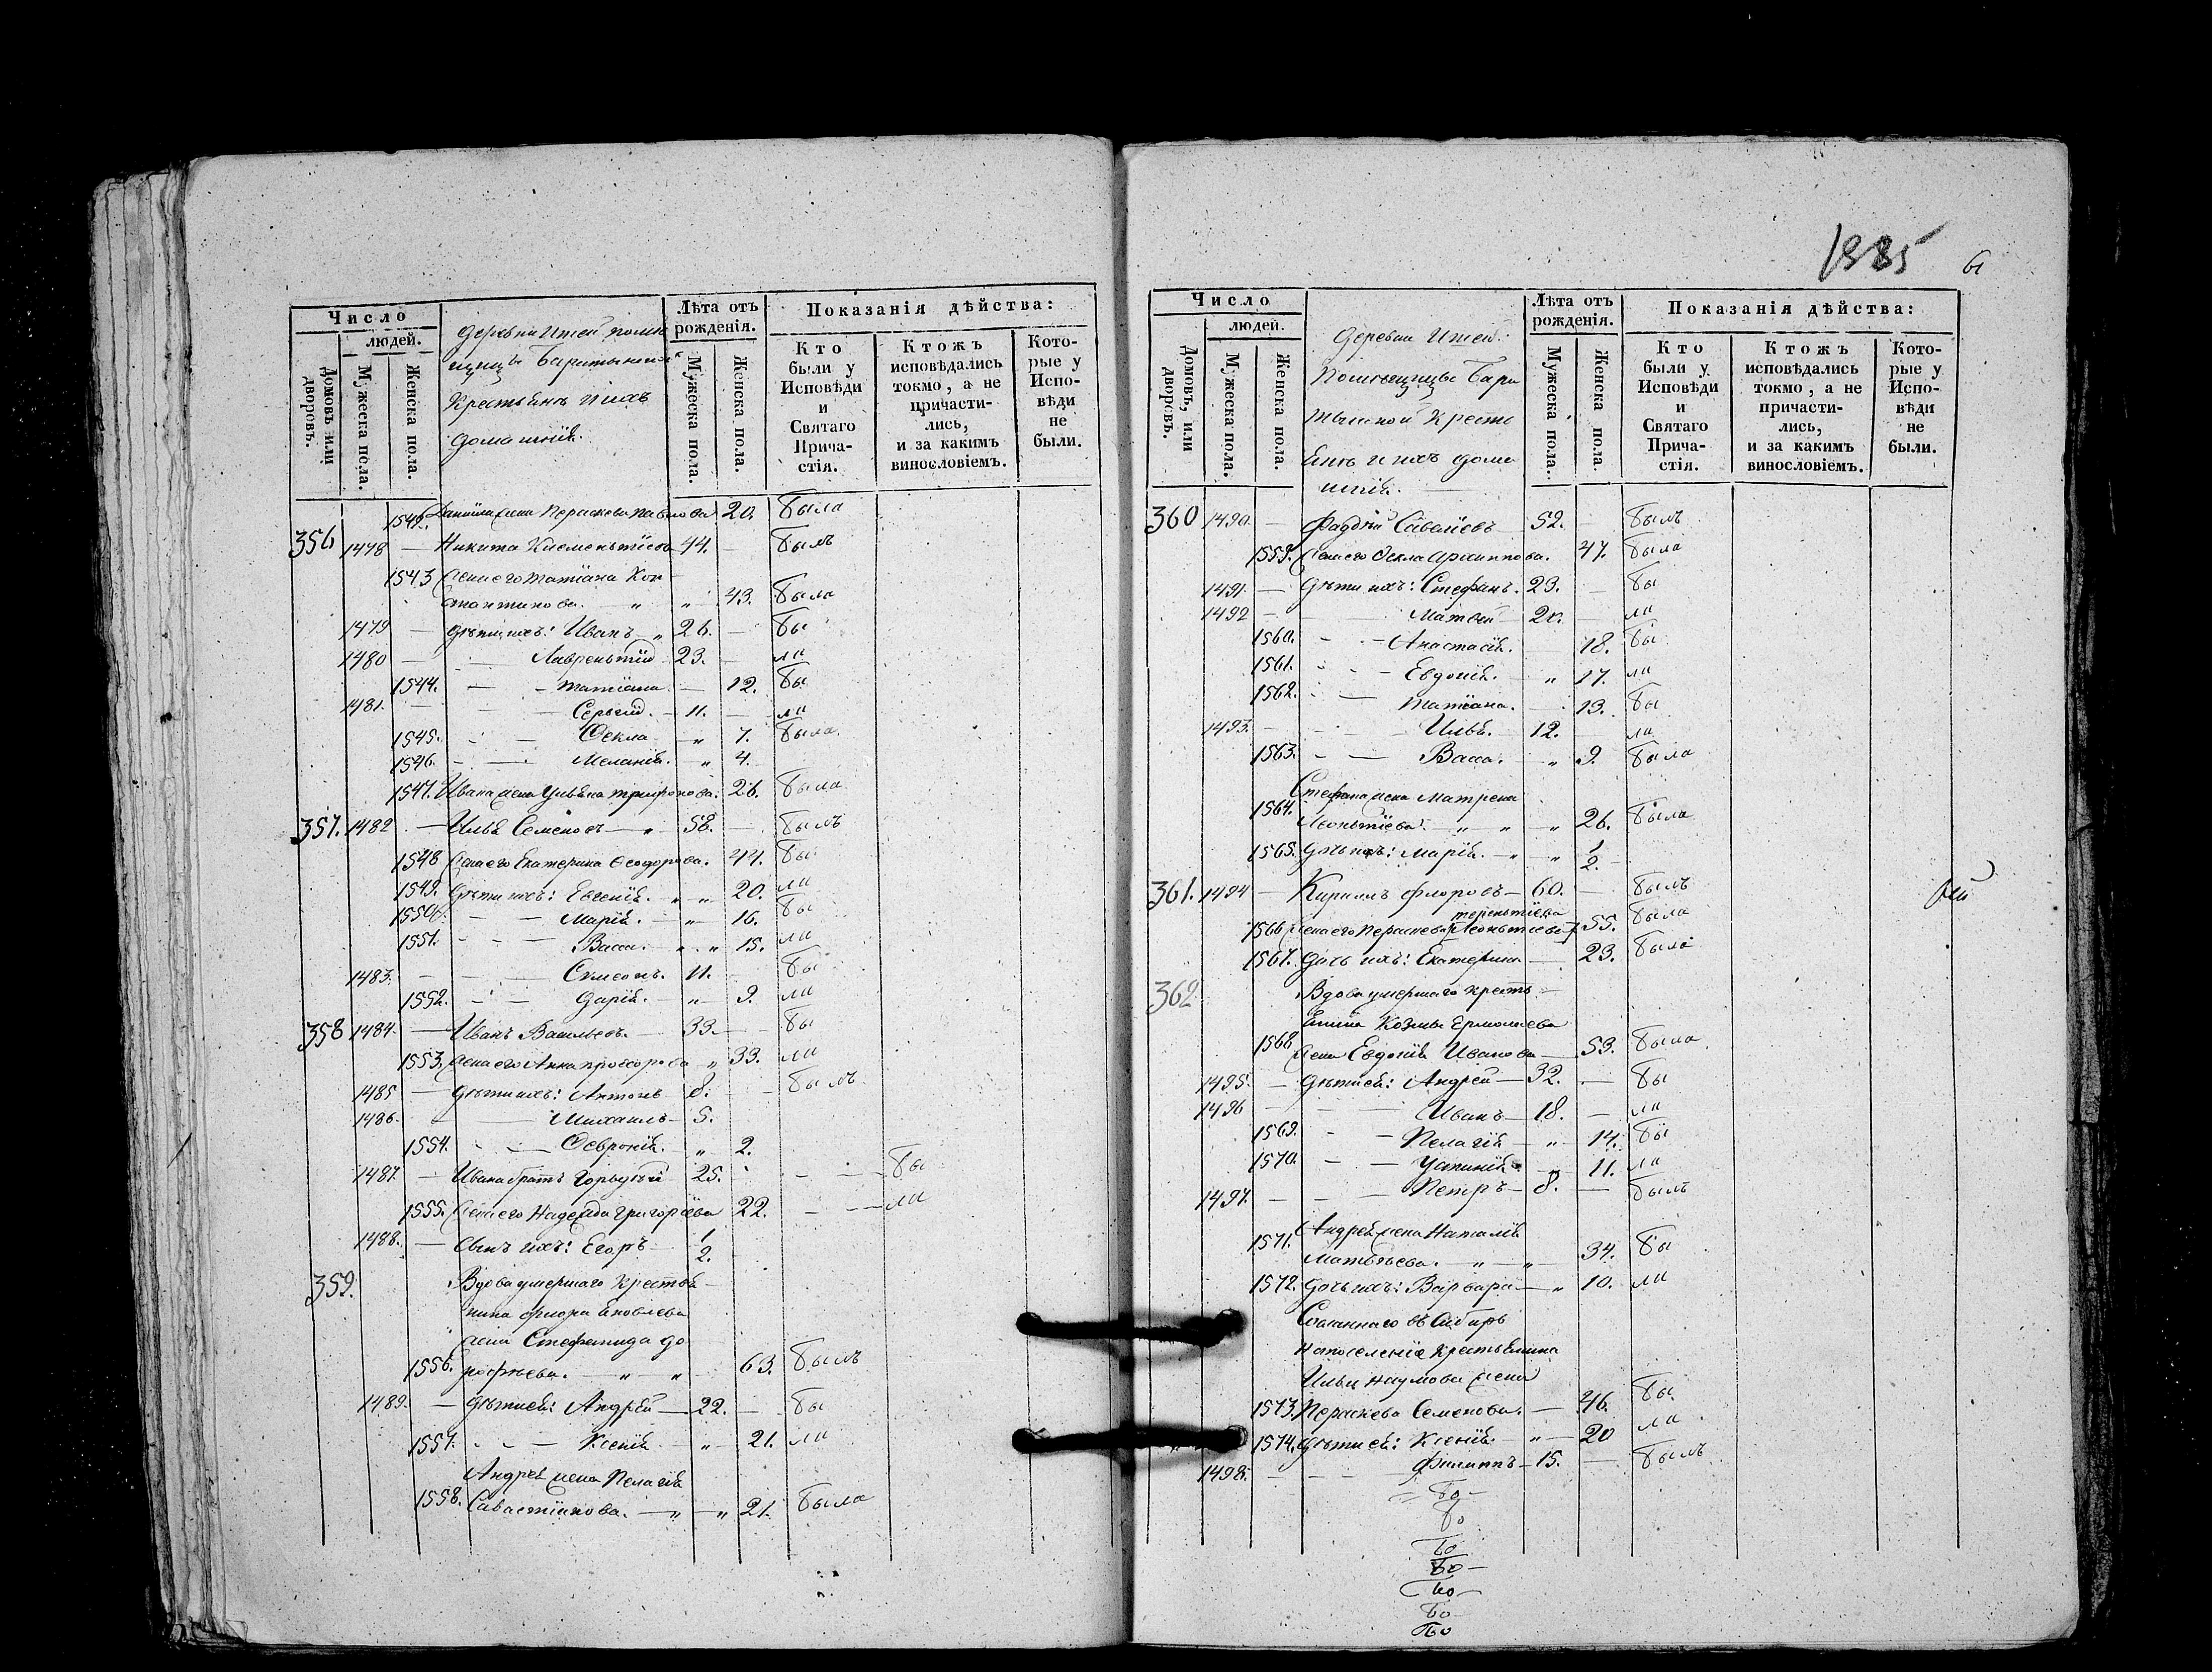 1885
61
Число
людей.
Домовъ или дворовъ.
Мужеска пола.
Женска пола.
деревни Ижей помѣ
щицы Баратынской
Крестьянъ и ихъ
домашнiя.
Лѣта отъ рожденія.
Мужеска пола.
Женска пола.
Показанія дѣйства:
Кто были у Исповѣди и Святаго Причастія.
Ктожъ исповѣдались токмо, а не причастились, и за какимъ винословіемъ.
Которые у Исповѣди не были.
1542. Даніила жена Параскева Павлова 20. была
356 1478 — Никита Клементіевъ 44. — былъ
1543 Жена его Татіана Кон
стантинова. „ „ 43. была
1479 — дѣти ихъ: Иванъ „ 26. — бы
1480 — — Лаврентій 23. — ли
1544. — — Татіана — 12. бы
1481. — — Сергій. — 11. — ли
1545. — — Ѳекла — „ 7. была
1546. — — Меланія. — „ 4.
1547. Ивана жена Ульяна Трифонова. 26. была
357. 1482 — Илья Семеновъ — „ 58. — былъ
1548 Жена его Екатерина Ѳеодорова. 44. бы
1549. дѣти ихъ: Евгенія. „ „ 20. ли
1550. — — Марія. — „ 16. бы
1551. — — Васса. — „ „ 15. ли
1483. — — Симеонъ. 11. — бы
1552. — — Дарія. — „ 9. ли
358 1484. — Иванъ Васильевъ. — 33. — бы
1553. Жена его Анна Прохорова „ 33. ли
1485 — дѣти ихъ: Антонъ 8. — былъ
1486. — — Михаилъ — 5.
1554. — — Ѳевронія. — „ 2.
1487. — Ивана братъ 25. — — бы
1555. Жена его Надежда Григорьева 22. — — ли
1488. — Сынъ ихъ: Егоръ 1/2.
359. Вдова умершаго крестья
нина Флора Яковлева
жена Стефанида До
1556. рофѣева. — „ „ 63. былъ
1489. — дѣти ея: Андрей — 22. — бы
1557. — — Ксенія — „ 21. ли
Андрея жена Пелагія
1558. Савастіанова. — „ — „ 21. была
Число
людей.
Домовъ, или дворовъ.
Мужеска пола.
Женска пола.
деревни Ижей.
Помѣщицы Бара
тынской Кресть
янъ и ихъ дома
шнія. —
Лѣта отъ рожденія.
Мужеска пола.
Женска пола.
Показанія дѣйства:
Кто были у Исповѣди и Святаго Причастія.
Ктожъ исповѣдались токмо, а не причастились, и за какимъ винословіемъ.
Которые у Исповѣди не были.
360 1490. — Фаддѣй Савельевъ — 52. — былъ
1559. Жена его Ѳекла Архиппова. 47. была
1491. — дѣти ихъ: Стефанъ. 23. — бы
1492 — — Матвѣй 20. — ли
1560. — — Анастасія. — 18. бы
1561. — — Евдокія. — „ 17. ли
1562. — — Татіана. — 13. бы
1493. — — Илья. — 12. — ли
1563. — — Васса. — „ 9. была
Стефана жена Матрена
1564. Леонтіева. — „ — „ — „ 26. была
1565. дочь ихъ: Марія. — „ „ 1/2.
361. 1494 — Кириллъ Флоровъ — 60. — былъ
терентіева
1566 Жена его Параскева [Леонтіева] 55. была
1567. дочь ихъ: Екатерина — 23. была
362 Вдова умершаго кресть
янина Козмы Ермолаева
1568 жена Евдокія Иванова — 53. была
1495. — дѣти ея: Андрей — 32. — бы
1496 — — Иванъ — 18. — ли
1569. — — Пелагія — „ 14. бы
1570. — — Устинія — „ 11. ли
1497. — — Петръ — 8. — былъ
Андрея жена Наталья
1571. Матвѣева. — „ — „ 34. бы
1572. дочь ихъ: Варвара — „ 10. ли
Сосланнаго въ Сибирь
на поселеніе крестьянина
Ильи Наумова жена
1573. Параскева Семенова. — 46. бы
1574. дѣти ея: Ксенія — „ — 20 ли
1498. — — Филиппъ — 15. — былъ